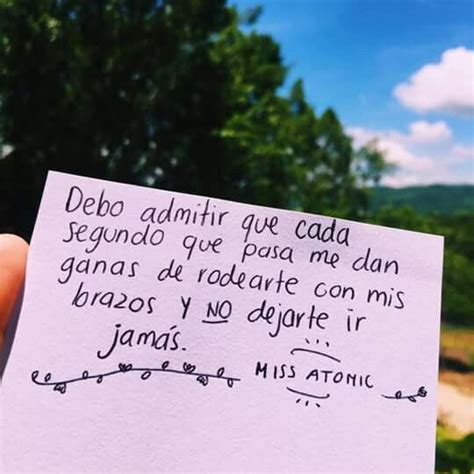 Debo admitir que cada
segundo que pasa me dan
ganas de rodearte con mis
brazos y NO dejarte ir
jamás.
MISS ATOMIC